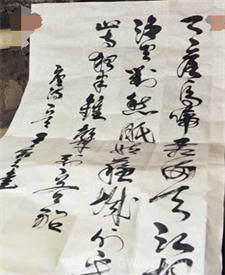 月落烏啼霜滿天江
漁火對愁眠姑蘇城外寒
山寺夜半鐘聲到客船
唐詩一首